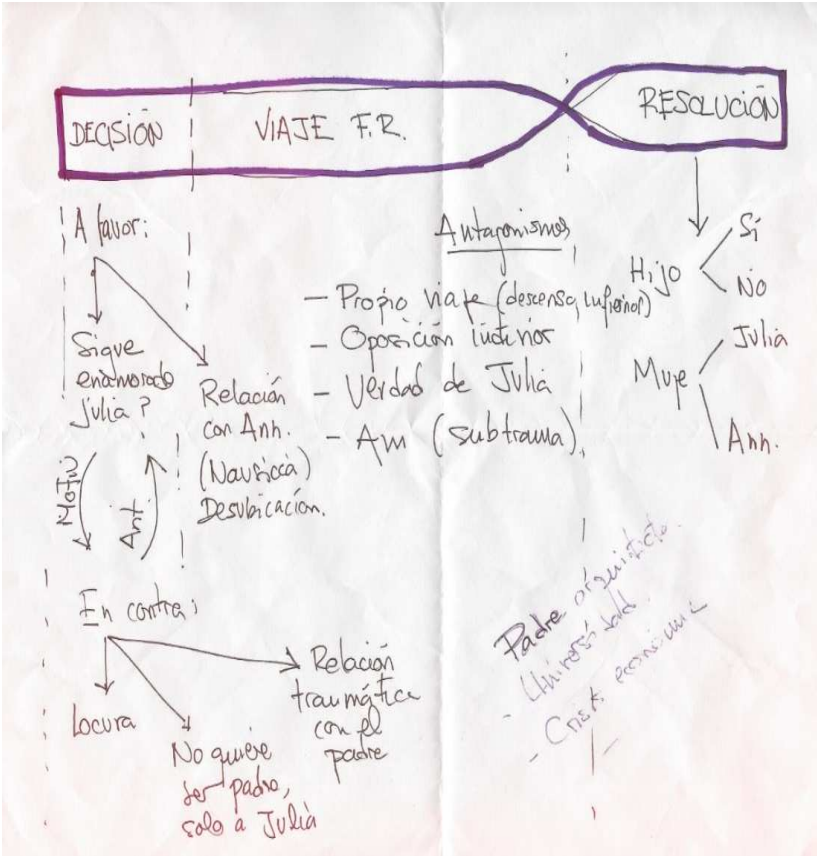 DECISIÓN
VIAJE F.R.
RESOLUCIÓN
A favor:
Sigue
enamorado
Julia?
Relación
con Ann.
(Nausicca)
Desubicación.
Motiv
Ant.
En contra:
Locura
No quiere
ser padre,
solo a Julia
Relación
traumática
con el
padre
Antagonismos
- Propio viaje (descenso, inferior)
- Oposición
- Verdad de Julia
- Am (subtrama)
Hijo
Sí
No
Muje
Julia
Ann.
Padre arquitecto.
- Universidad.
- Crisis económica